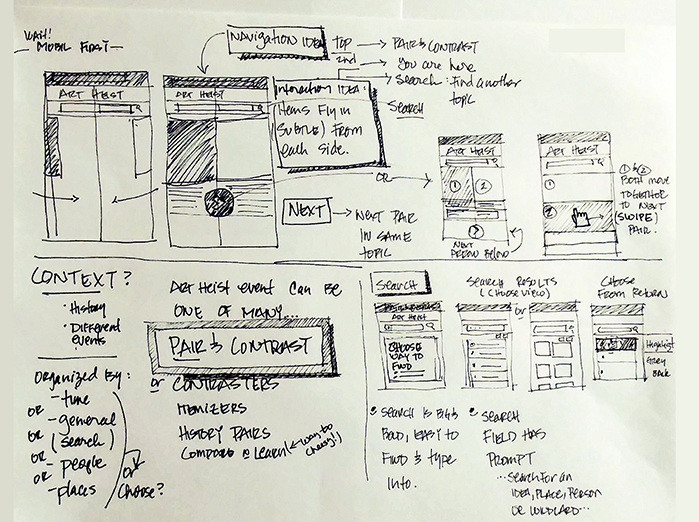 WAIT!
— MOBIL FIRST —
NAVIGATION IDEA
TOP → PAIR & CONTRAST
2ND → You are here
→ Search: Find another
topic
SEARCH
ART HEIST
ART HEIST
Interaction IDEA:
Items Fly in
(SUBTLE) From
each side.
OR
NEXT
→ NEXT PAIR
IN SAME
TOPIC
ART HEIST
1
2
NEXT
ARROW BELOW
ART HEIST
1
2
1 & 2
BOTH MOVE
TOGETHER
TO NEXT
(SWIPE)
PAIR.
CONTEXT?
· History
· Different
events
ORGANIZED BY:
- time
OR - general
OR (search)
OR - people
OR - places
OR
Choose?
ART HEIST event can be
ONE OF MANY...
PAIR & CONTRAST
or CONTRASTERS
ITEMIZERS
HISTORY PAIRS
COMPARE & LEARN (← way to cheesy!)
Search
ART HEIST
CHOOSE
WAY TO
FIND
SEARCH RESULTS
(CHOOSE VIEW)
or
CHOOSE
FROM RETURN
Highlight
Grey
Back
• SEARCH IS BIG &
BOLD, EASY TO
FIND & TYPE
INTO.
• SEARCH
FIELD HAS
PROMPT
...SEARCH FOR AN
IDEA, PLACE, PERSON
OR WILDCARD...